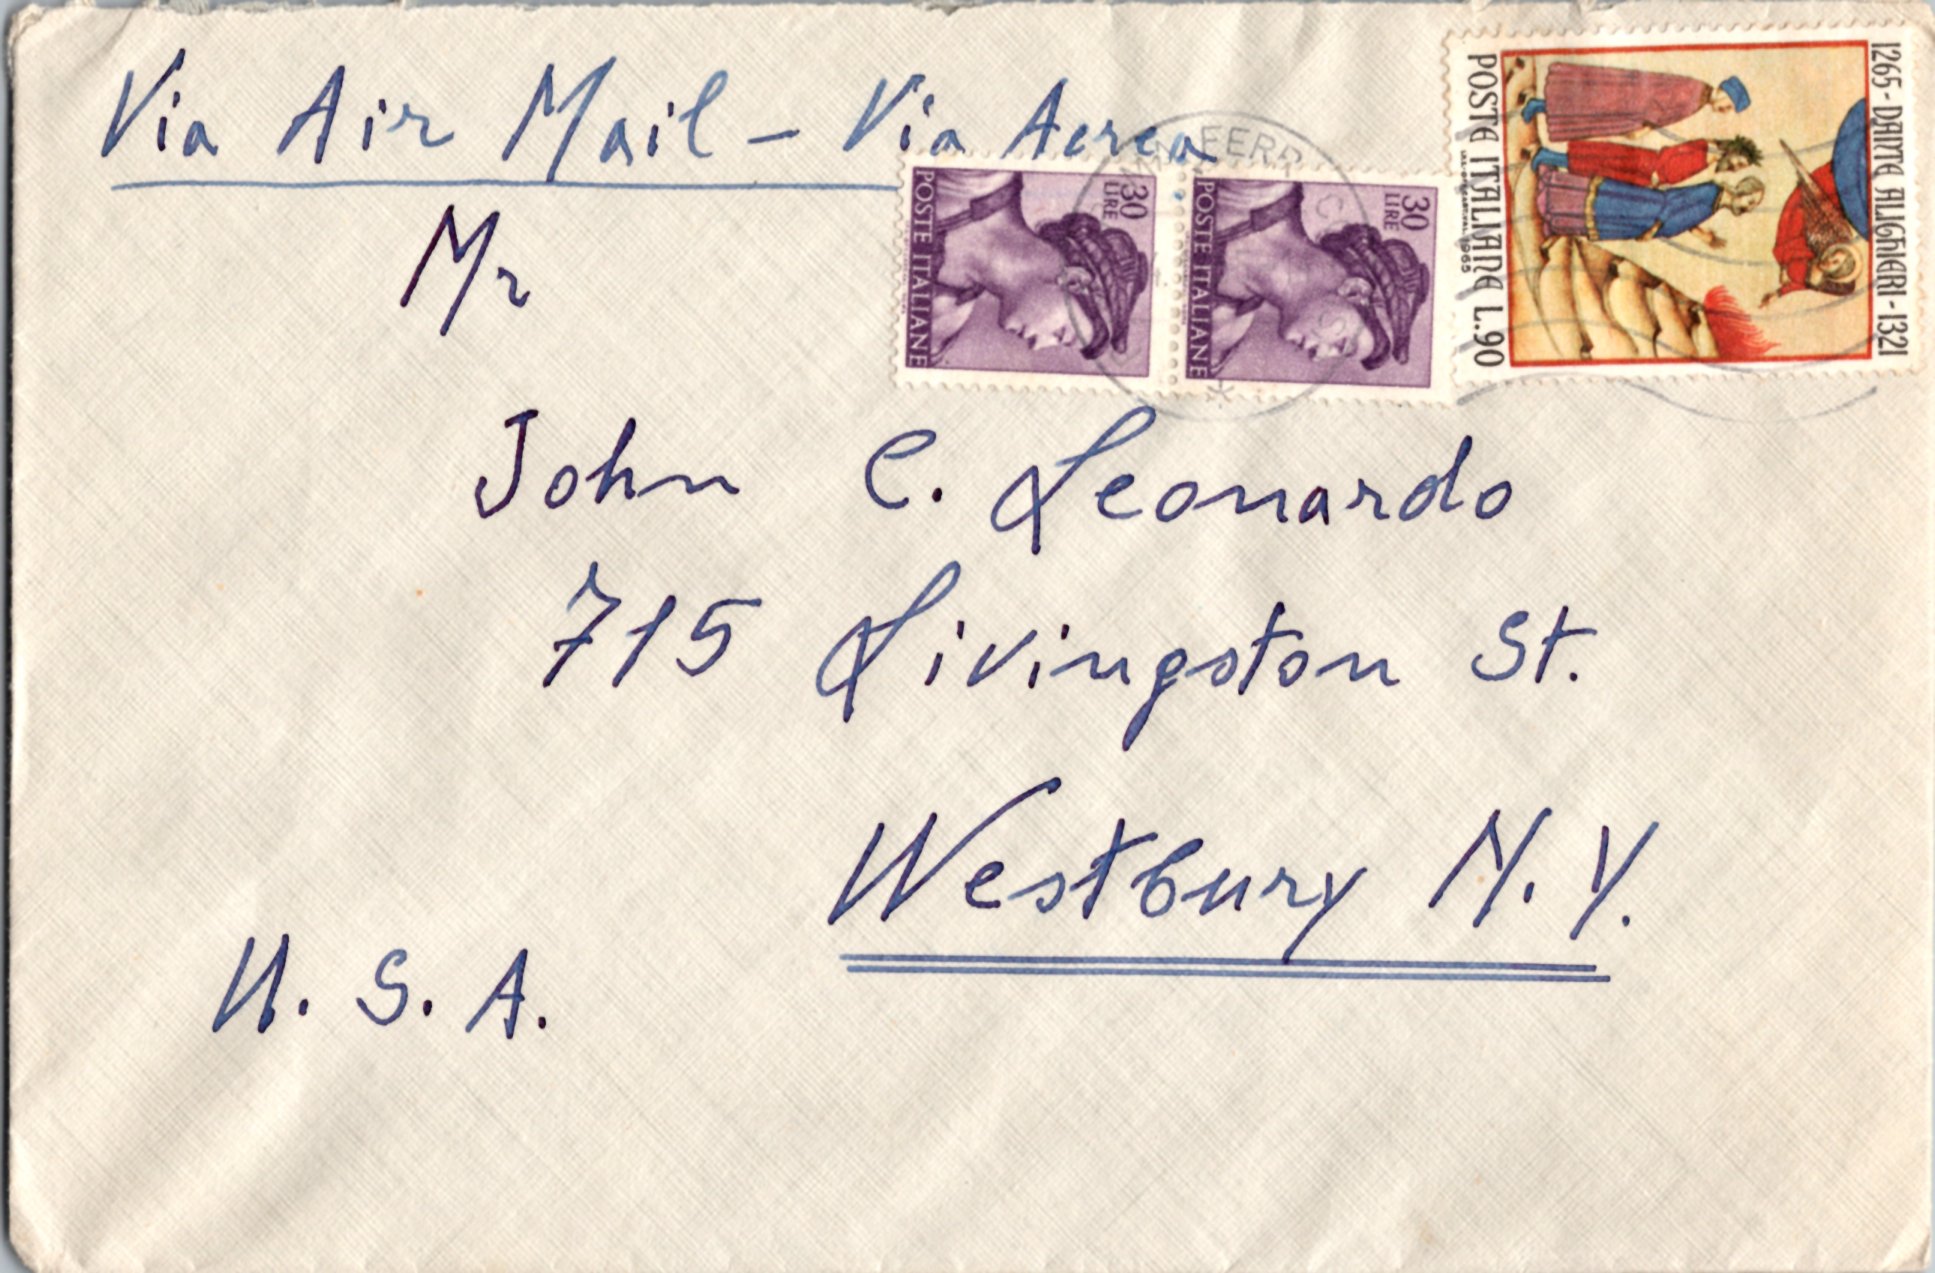 Via Air Mail - Via Aerea
Mr
John C. Leonardo
715 Livingston St.
Westbury N.Y.
U.S.A.
30
LIRE
POSTE ITALIANE
30
LIRE
POSTE ITALIANE
1265 - DANTE ALIGHIERI - 1321
POSTE ITALIANE L.90